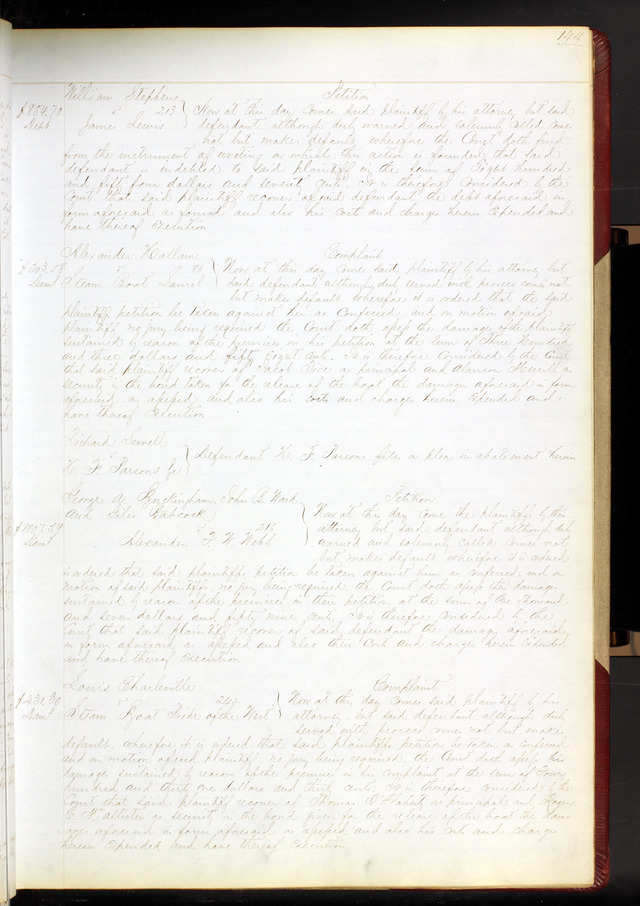 144
William Stephens Petition
$854.70 vs 203 Now at this day comes said plaintiff by his attorney but said
Debt James Lewis defendant although duly warned and solemnly called comes
not but makes default wherefore the Court doth find
from the instrument of writing on which this action is founded that said
defendant is indebted to said plaintiff in the sum of Eight hundred
and fifty four dollars and seventy cents. It is therefore Considered by the
Court that said plaintiff recover of said defendant the debt aforesaid in
form aforesaid as found and also his costs and charges herein expended and
have thereof Execution
Alexander Hallam Complaint
$303.58 vs 80 Now at this day comes said plaintiff by his attorney but
Dam Steam Boat Laurel said defendant although duly served with process comes not
but makes default wherefore it is ordered that the said
plaintiffs petition be taken against him as Confessed, and on motion of said
plaintiff no jury being required the Court doth assess the damages of the plaintiff
sustained by reason of the premises in his petition at the sum of Three Hundred
and three dollars and fifty Eight cents. It is therefore Considered by the Court
that said plaintiff recover of Jacob as principal and
security in the bond taken for the release of the boat the damages aforesaid in form
aforesaid as assessed and also his costs and charges herein Expended and
have thereof Execution
Richard Sewell
vs Defendant H. F. Parsons files a plea in abatement herein
H. F. Parsons Jr
George A. Buckingham, John B. Ward Petition
and Giles Babcock Now at this day come the plaintiffs by their
$1007.59 vs attorney but said defendant although duly
Dam Alexander F. W. Webb warned and solemnly called comes not
but makes default wherefore it is ordered
is ordered that said plaintiffs petition be taken against him as confessed and on
motion of said plaintiffs no jury being required the Court doth assess the damages
sustained by reason of the premises in their petition at the sum of One Thousand
and seven dollars and fifty nine cents, it is therefore Considered by the
Court that said plaintiffs recover of said defendant the damages aforesaid
in form aforesaid as assessed and also their Costs and charges herein Expended
and have thereof Execution
Louis Charleville Complaint
$431.30 vs Now at this day comes said plaintiff by his
Dam Steam Boat Pride of the West attorney but said defendant although duly
served with process comes not but makes
default, wherefore it is ordered that said plaintiffs petition be taken as Confessed
and on motion of said plaintiff no jury being required the Court doth assess his
damages sustained by reason of the premises in his complaint at the sum of Four
hundred and thirty one dollars and thirty cents. It is therefore considered by the
Court that said plaintiff recover of Thomas O'Flaherty as principal and Roger
as security in the bond given for the release of the boat the dam-
ages aforesaid in form aforesaid as assessed and also his Costs and charges
herein Expended and have thereof Execution